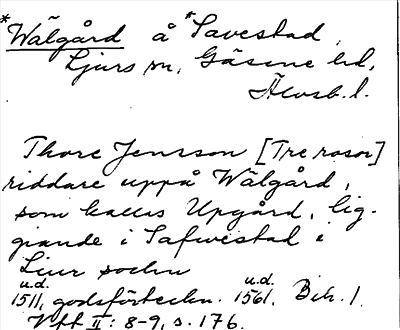 *Wälgård å *Savestad,
Ljurs sn, Gäsene hd,
Älvsb. l.
Thore Jensson [Tre rosor]
riddare uppå Wälgård,
som kallas Upgård, lig-
giande i Safwestad i
Liur sochn
u.d. u.d.
1511, godsförteckn. 1561, Bih. 1.
Vff II: 8-9, s. 176.